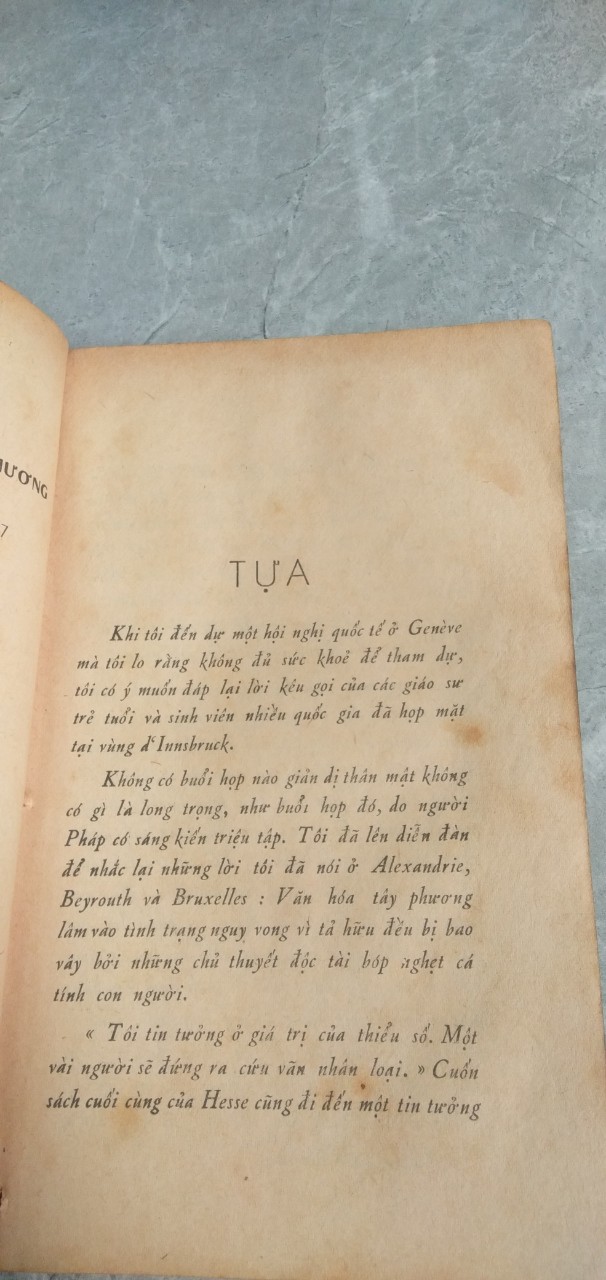 ƯƠNG
7
TỰA
Khi tôi đến dự một hội nghị quốc tế ở Genève
mà tôi lo rằng không đủ sức khoẻ để tham dự,
tôi có ý muốn đáp lại lời kêu gọi của các giáo sư
trẻ tuổi và sinh viên nhiều quốc gia đã họp mặt
tại vùng d'Innsbruck.
Không có buổi họp nào giản dị thân mật không
có gì là long trọng, như buổi họp đó, do người
Pháp có sáng kiến triệu tập. Tôi đã lên diễn đàn
để nhắc lại những lời tôi đã nói ở Alexandrie,
Beyrouth và Bruxelles : Văn hóa tây phương
lâm vào tình trạng nguy vong vì tả hữu đều bị bao
vây bởi những chủ thuyết độc tài bóp nghẹt cá
tính con người.
« Tôi tin tưởng ở giá trị của thiểu số. Một
vài người sẽ đứng ra cứu vãn nhân loại. » Cuốn
sách cuối cùng của Hesse cũng đi đến một tin tưởng